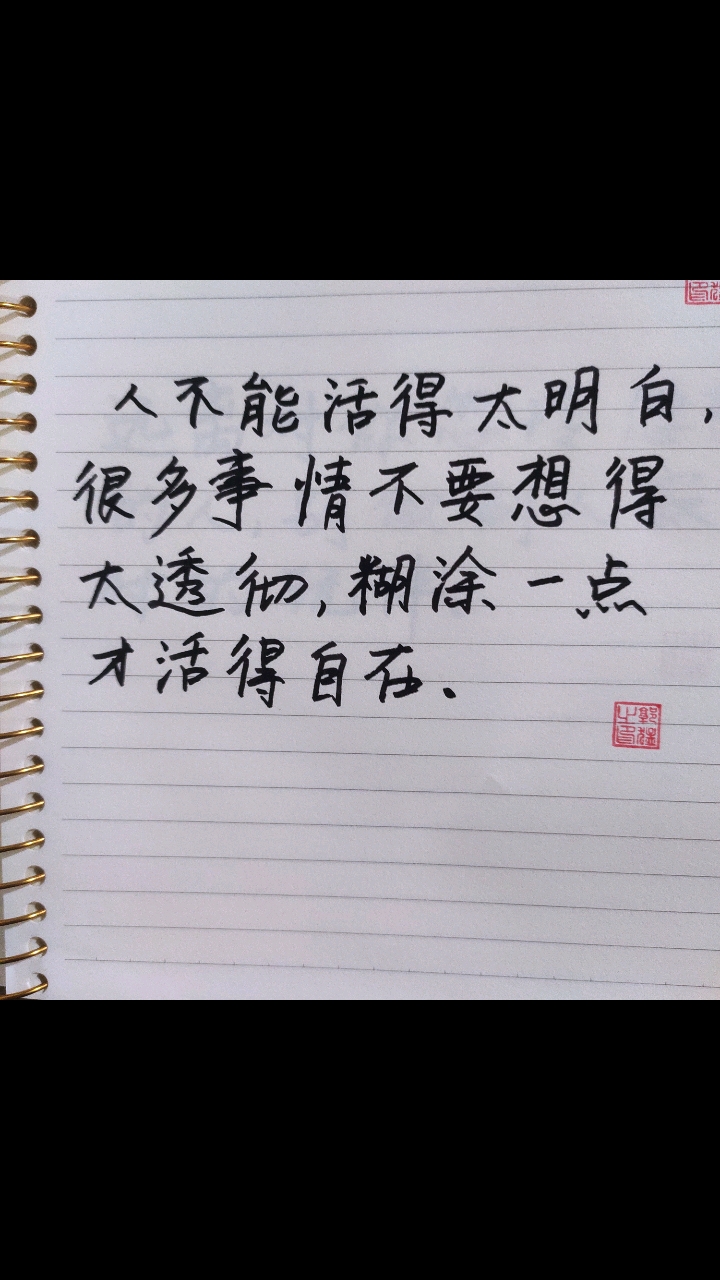 人不能活得太明白,
很多事情不要想得
太透彻,糊涂一点
才活得自在.